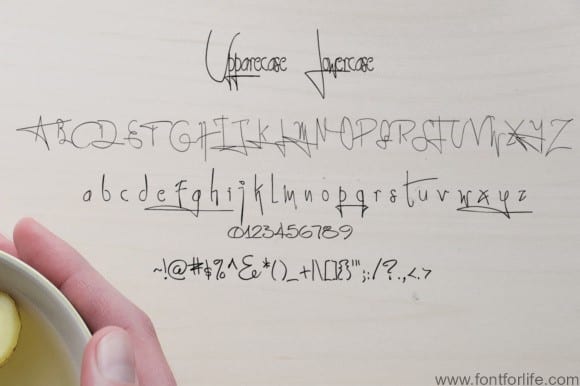 Upparecase Lowercase
A B C D E F G H I J K L M N O P Q R S T U V W X Y Z
a b c d e f g h i j k l m n o p q r s t u v w x y z
0123456789
~!@#$%^&*()_+|\[]{}"';:/?.,<.>
www.fontforlife.com